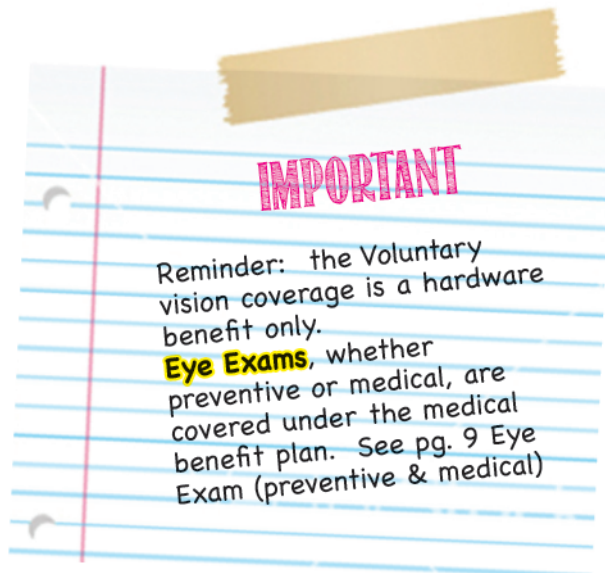 IMPORTANT
Reminder:   the Voluntary
vision coverage is a hardware
benefit only.
Eye Exams, whether
preventive or medical, are
covered under the medical
benefit plan.  See pg. 9 Eye
Exam (preventive & medical)